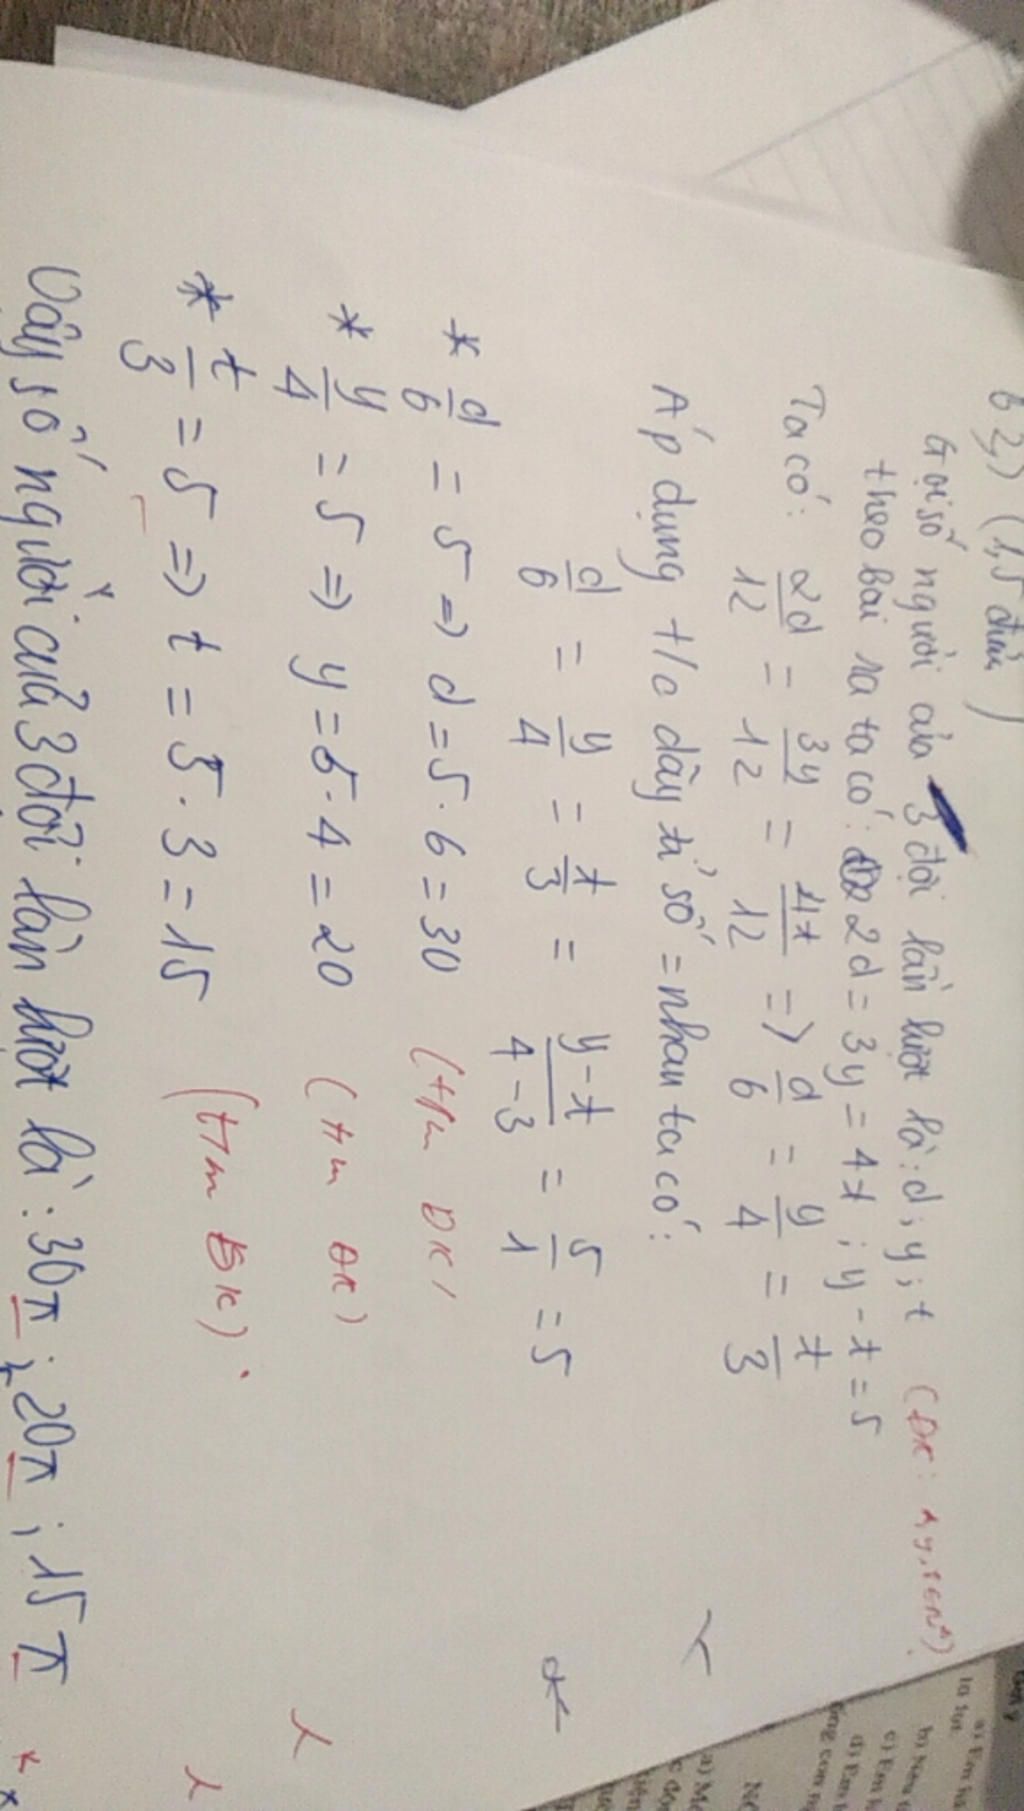 b2,) (1,5 điểm)
Gọi số người của 3 đội lần lượt là: d; y; t (ĐK:
theo bài ra ta có: 2d = 3y = 4t; y - t = 5
Ta có: 2d/12 = 3y/12 = 4t/12 => d/6 = y/4 = t/3
Áp dụng t/c dãy tỉ số = nhau ta có:
d/6 = y/4 = t/3 = y-t/4-3 = 5/1 = 5
* d/6 = 5 => d = 5.6 = 30 (tm ĐK)
* y/4 = 5 => y = 5.4 = 20 (tm ĐK)
* t/3 = 5 => t = 5.3 = 15 (t/m ĐK).
Vậy số người của 3 đội lần lượt là: 30π; 20π; 15π
a) Em
b) Năm
c) Em
d) Em